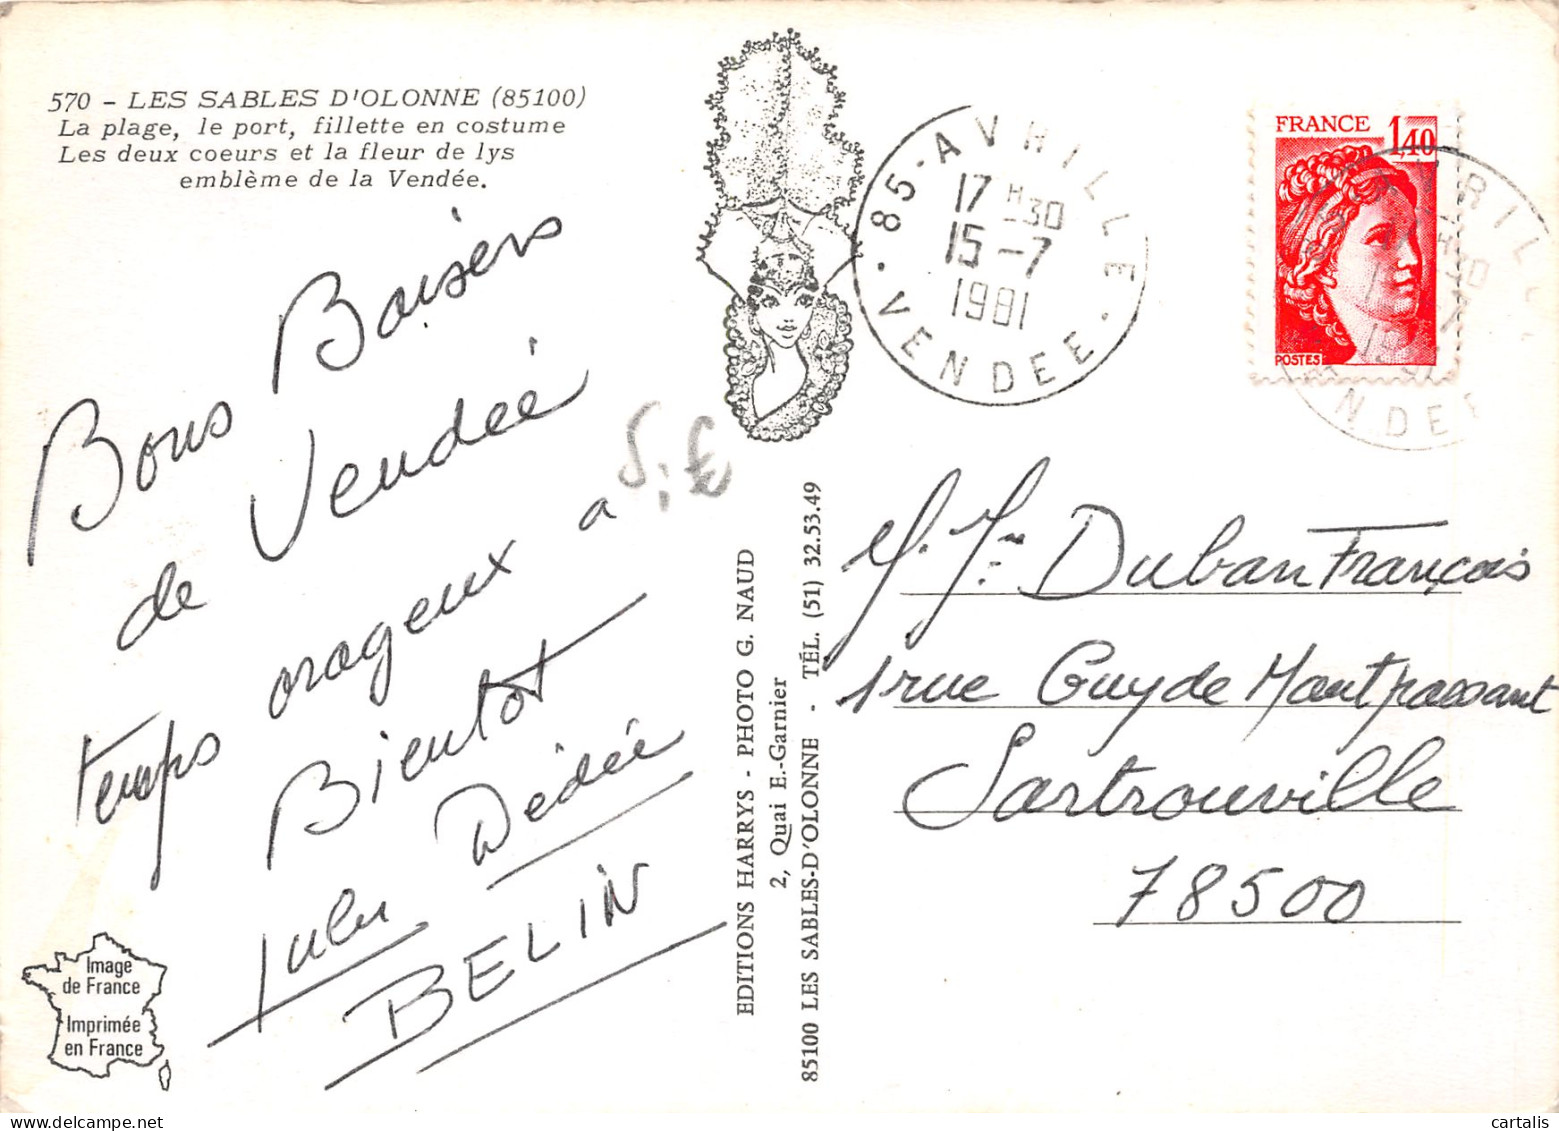 570 - LES SABLES D'OLONNE (85100)
La plage, le port, fillette en costume
Les deux coeurs et la fleur de lys
emblème de la Vendée.
85 - AVRILLE
17 H 30
15 - 7
1981
VENDEE
FRANCE 1,40
POSTES
Bons Baisers
de Vendée
temps orageux a
Bientot
Lulu Dédée
BELIN
M. Me Duban François
1 rue Guy de Mantpassant
Sartrouville
78500
EDITIONS HARRYS - PHOTO G. NAUD
2, Quai E.-Garnier
85100 LES SABLES-D'OLONNE - TÉL. (51) 32.53.49
Image
de France
Imprimée
en France
Copyright cartalis